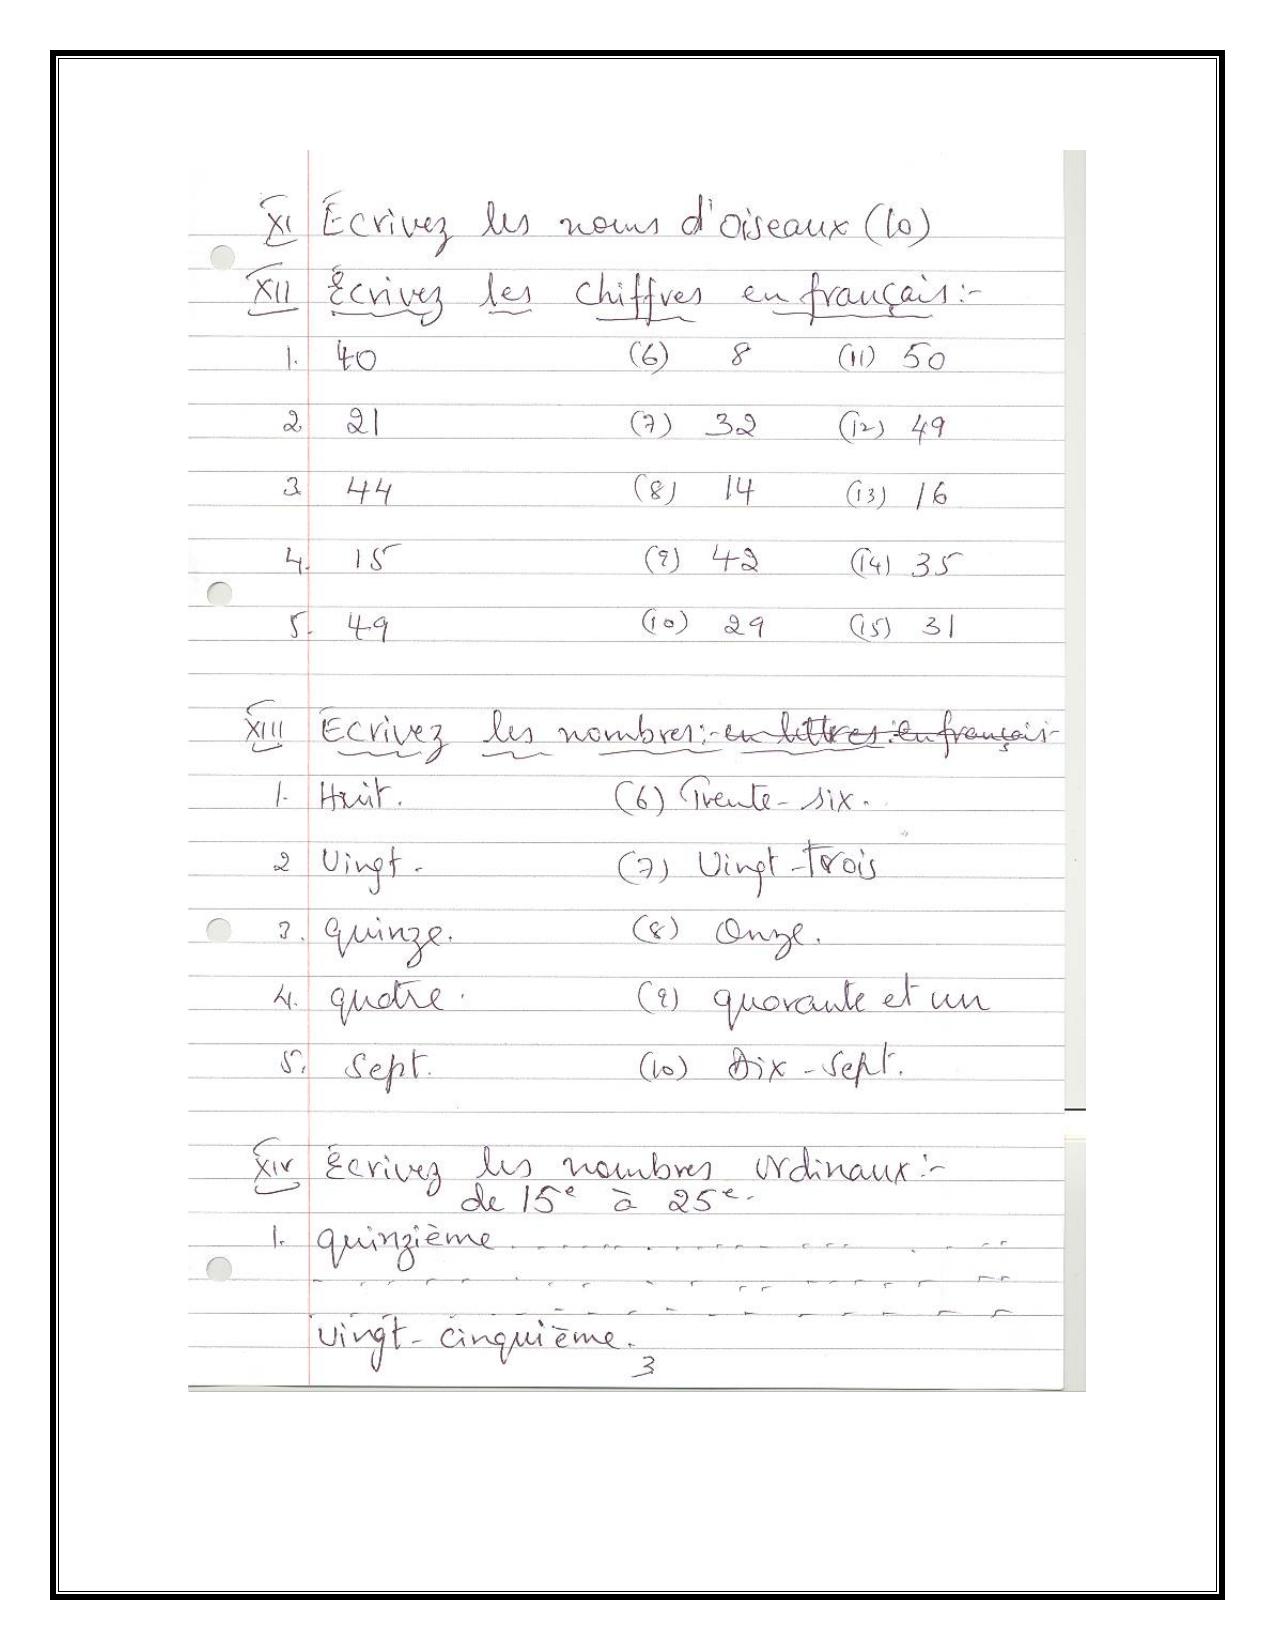 XI Ecrivez les noms d'oiseaux (10)
XII Ècrivez les chiffres en français:-
1. 40 (6) 8 (11) 50
2. 21 (7) 32 (12) 49
3. 44 (8) 14 (13) 16
4. 15 (9) 42 (14) 35
5. 49 (10) 29 (15) 31
XIII Ecrivez les nombres:- en lettres: en français-
1. Huit. (6) Trente-six.
2 Vingt. (7) Vingt-Trois
3. quinze. (8) Onze.
4. quatre. (9) quarante et un
5. Sept. (10) Dix-sept.
XIV Ècrivez les nombres ordinaux:-
de 15e à 25e.
1. quinzième
vingt-cinquième.
3